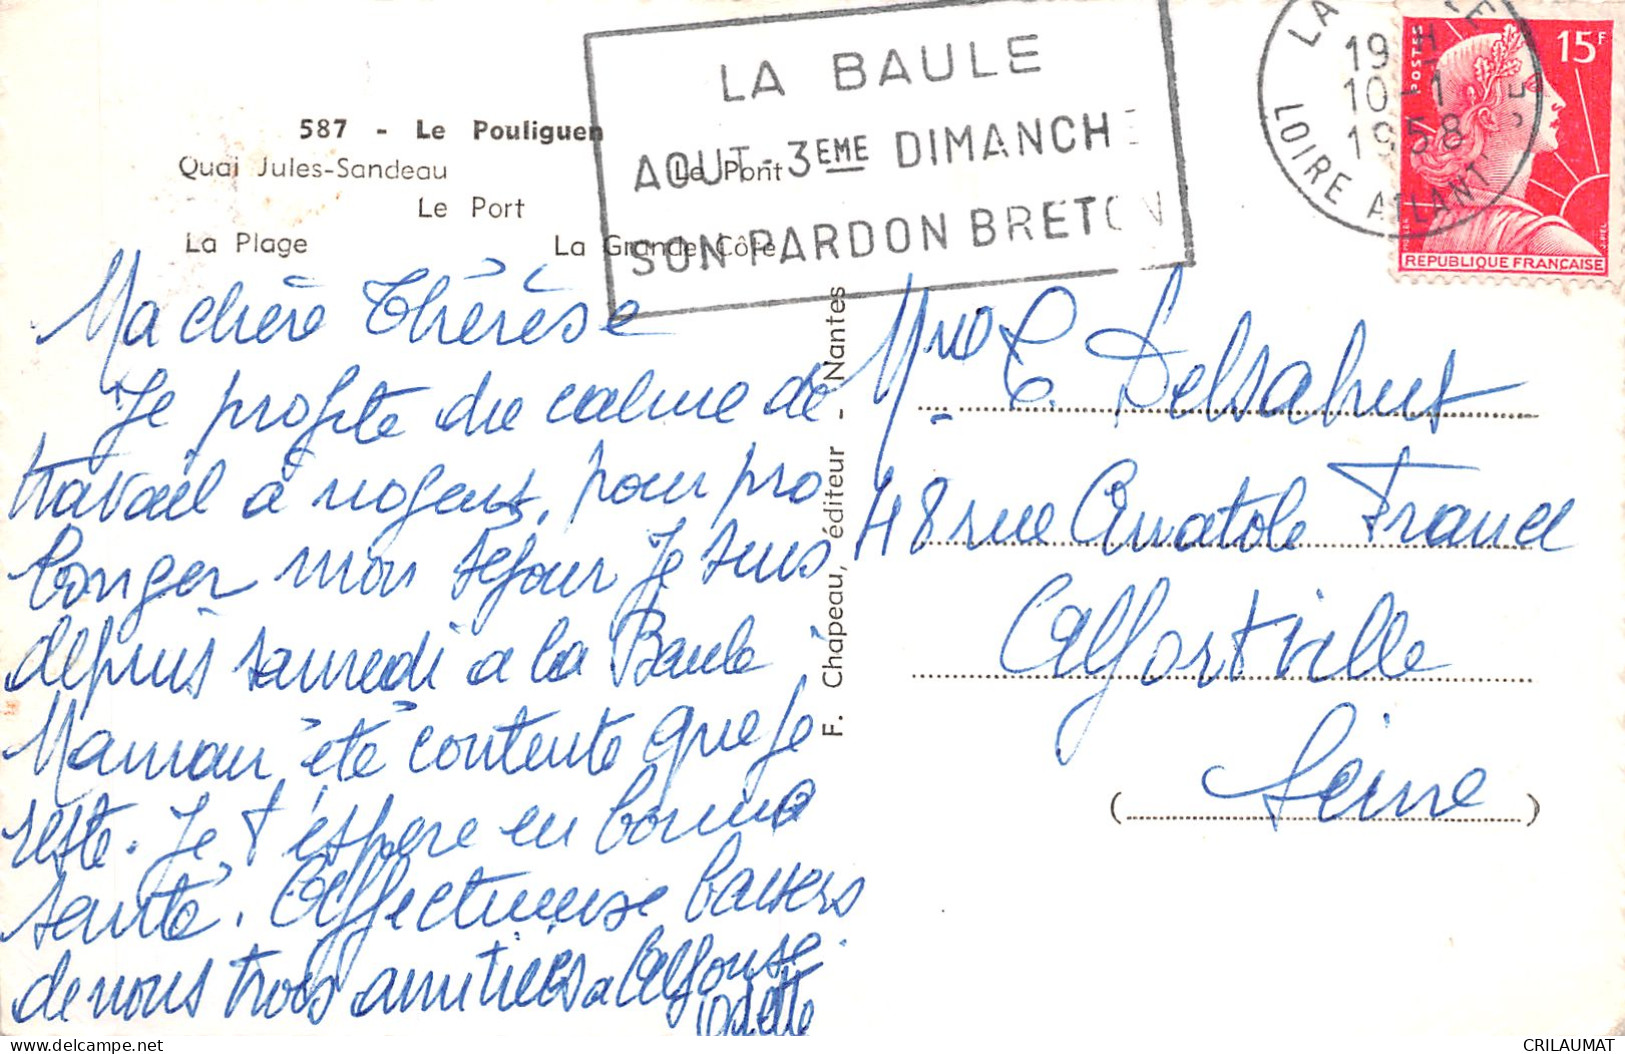 587 - Le Pouliguen
Quai Jules-Sandeau
Le Pont
Le Port
La Plage
La Grande Côte
LA BAULE
AOUT - 3EME DIMANCHE
SON PARDON BRETON
LA
19 H
10-1
1958
LOIRE ATLANT
POSTES
15F
REPUBLIQUE FRANCAISE
Ma chère Thérèse
Je profite du calme de
travail à nogent, pour pro
longer mon séjour Je suis
depuis samedi a la Baule
Maman été contente que je
reste. Je t'éspere en bonne
santé. Affectueuse baisers
de nous trois amitiés a Alfonse
Odette
F. Chapeau, éditeur - Nantes
Mme E. Delsahut
48 rue Anatole France
Alfortville
(Seine)
CRILAUMAT